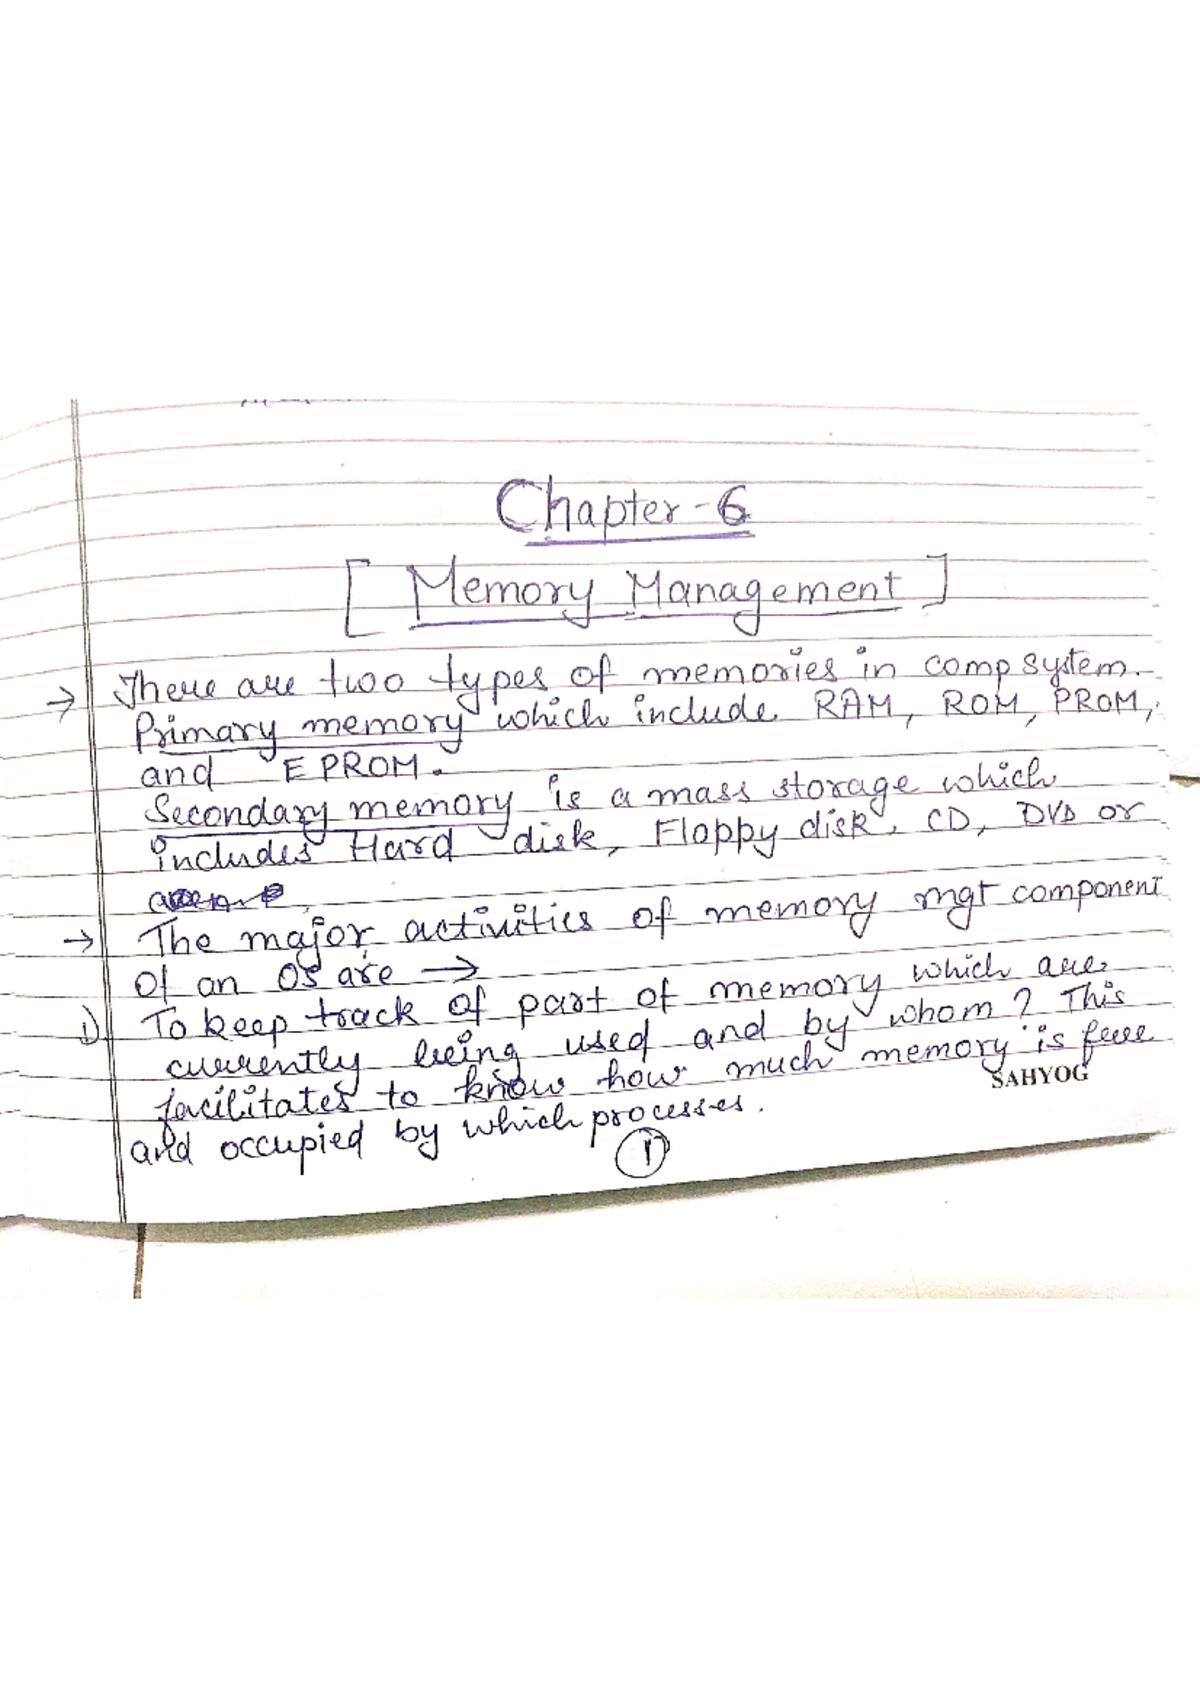 Chapter-6
[ Memory Management ]
→ There are two types of memories in comp system.
Primary memory which include RAM, ROM, PROM,
and EPROM.
Secondary memory is a mass storage which
includes Hard disk, Floppy disk, CD, DVD or
→ The major activities of memory mgt component
Of an OS are →
1) To keep track of part of memory which are
currently being used and by whom ? This
facilitates to know how much memory is free
SAHYOG
and occupied by which processes.
1